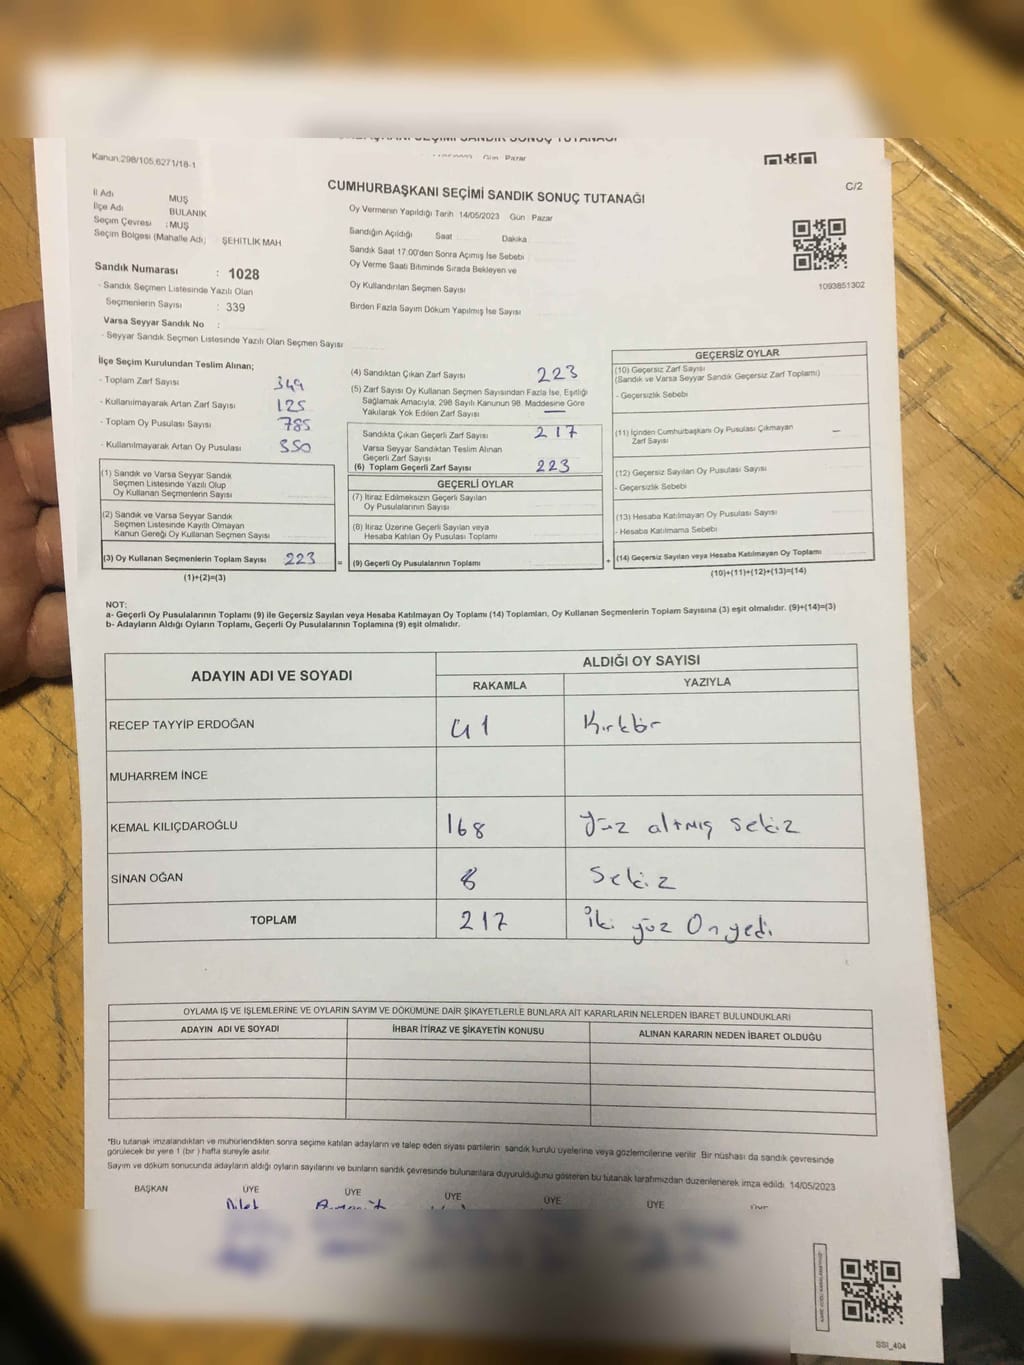 Kanun:298/105,6271/18-1
Gün Pazar
C/2
CUMHURBAŞKANI SEÇİMİ SANDIK SONUÇ TUTANAĞI
İl Adı MUŞ
İlçe Adı BULANIK
Seçim Çevresi : MUŞ
Seçim Bölgesi (Mahalle Adı) : ŞEHİTLİK MAH
Oy Vermenin Yapıldığı Tarih 14/05/2023 Gün : Pazar
Sandığın Açıldığı Saat Dakika
Sandık Saat 17:00'den Sonra Açımış İse Sebebi
Oy Verme Saati Bitiminde Sırada Bekleyen ve
Oy Kullandırılan Seçmen Sayısı
Birden Fazla Sayım Döküm Yapılmış İse Sayısı
1093851302
Sandık Numarası : 1028
- Sandık Seçmen Listesinde Yazılı Olan
Seçmenlerin Sayısı : 339
Varsa Seyyar Sandık No :
- Seyyar Sandık Seçmen Listesinde Yazılı Olan Seçmen Sayısı
İlçe Seçim Kurulundan Teslim Alınan;
- Toplam Zarf Sayısı 349
- Kullanılmayarak Artan Zarf Sayısı 125
- Toplam Oy Pusulası Sayısı 785
- Kullanılmayarak Artan Oy Pusulası 350
(1) Sandık ve Varsa Seyyar Sandık
Seçmen Listesinde Yazılı Olup
Oy Kullanan Seçmenlerin Sayısı
(2) Sandık ve Varsa Seyyar Sandık
Seçmen Listesinde Kayıtlı Olmayan
Kanun Gereği Oy Kullanan Seçmen Sayısı
(3) Oy Kullanan Seçmenlerin Toplam Sayısı 223
(1)+(2)=(3)
=
(4) Sandıktan Çıkan Zarf Sayısı 223
(5) Zarf Sayısı Oy Kullanan Seçmen Sayısından Fazla İse, Eşitliği
Sağlamak Amacıyla, 298 Sayılı Kanunun 98. Maddesine Göre
Yakılarak Yok Edilen Zarf Sayısı —
Sandıkta Çıkan Geçerli Zarf Sayısı 217
Varsa Seyyar Sandıktan Teslim Alınan
Geçerli Zarf Sayısı
(6) Toplam Geçerli Zarf Sayısı 223
GEÇERLİ OYLAR
(7) İtiraz Edilmeksizin Geçerli Sayılan
Oy Pusulalarının Sayısı
(8) İtiraz Üzerine Geçerli Sayılan veya
Hesaba Katılan Oy Pusulası Toplamı
(9) Geçerli Oy Pusulalarının Toplamı
+
GEÇERSİZ OYLAR
(10) Geçersiz Zarf Sayısı
(Sandık ve Varsa Seyyar Sandık Geçersiz Zarf Toplamı)
- Geçersizlik Sebebi
(11) İçinden Cumhurbaşkanı Oy Pusulası Çıkmayan
Zarf Sayısı —
(12) Geçersiz Sayılan Oy Pusulası Sayısı
- Geçersizlik Sebebi
(13) Hesaba Katılmayan Oy Pusulası Sayısı
- Hesaba Katılmama Sebebi
(14) Geçersiz Sayılan veya Hesaba Katılmayan Oy Toplamı
(10)+(11)+(12)+(13)=(14)
NOT:
a- Geçerli Oy Pusulalarının Toplamı (9) ile Geçersiz Sayılan veya Hesaba Katılmayan Oy Toplamı (14) Toplamları, Oy Kullanan Seçmenlerin Toplam Sayısına (3) eşit olmalıdır. (9)+(14)=(3)
b- Adayların Aldığı Oyların Toplamı, Geçerli Oy Pusulalarının Toplamına (9) eşit olmalıdır.
ADAYIN ADI VE SOYADI
ALDIĞI OY SAYISI
RAKAMLA YAZIYLA
RECEP TAYYİP ERDOĞAN 41 Kırkbir
MUHARREM İNCE
KEMAL KILIÇDAROĞLU 168 yüz altmış sekiz
SİNAN OĞAN 8 Sekiz
TOPLAM 217 İki yüz Onyedi
OYLAMA İŞ VE İŞLEMLERİNE VE OYLARIN SAYIM VE DÖKÜMÜNE DAİR ŞİKAYETLERLE BUNLARA AİT KARARLARIN NELERDEN İBARET BULUNDUKLARI
ADAYIN ADI VE SOYADI İHBAR İTİRAZ VE ŞİKAYETİN KONUSU ALINAN KARARIN NEDEN İBARET OLDUĞU
*Bu tutanak imzalandıktan ve mühürlendikten sonra seçime katılan adayların ve talep eden siyasi partilerin sandık kurulu üyelerine veya gözlemcilerine verilir. Bir nüshası da sandık çevresinde
görülecek bir yere 1 (bir ) hafta süreyle asılır.
Sayım ve döküm sonucunda adayların aldığı oyların sayılarını ve bunların sandık çevresinde bulunanlara duyurulduğunu gösteren bu tutanak tarafımızdan düzenlenerek imza edildi. 14/05/2023
BAŞKAN ÜYE ÜYE ÜYE ÜYE ÜYE
SSI_404